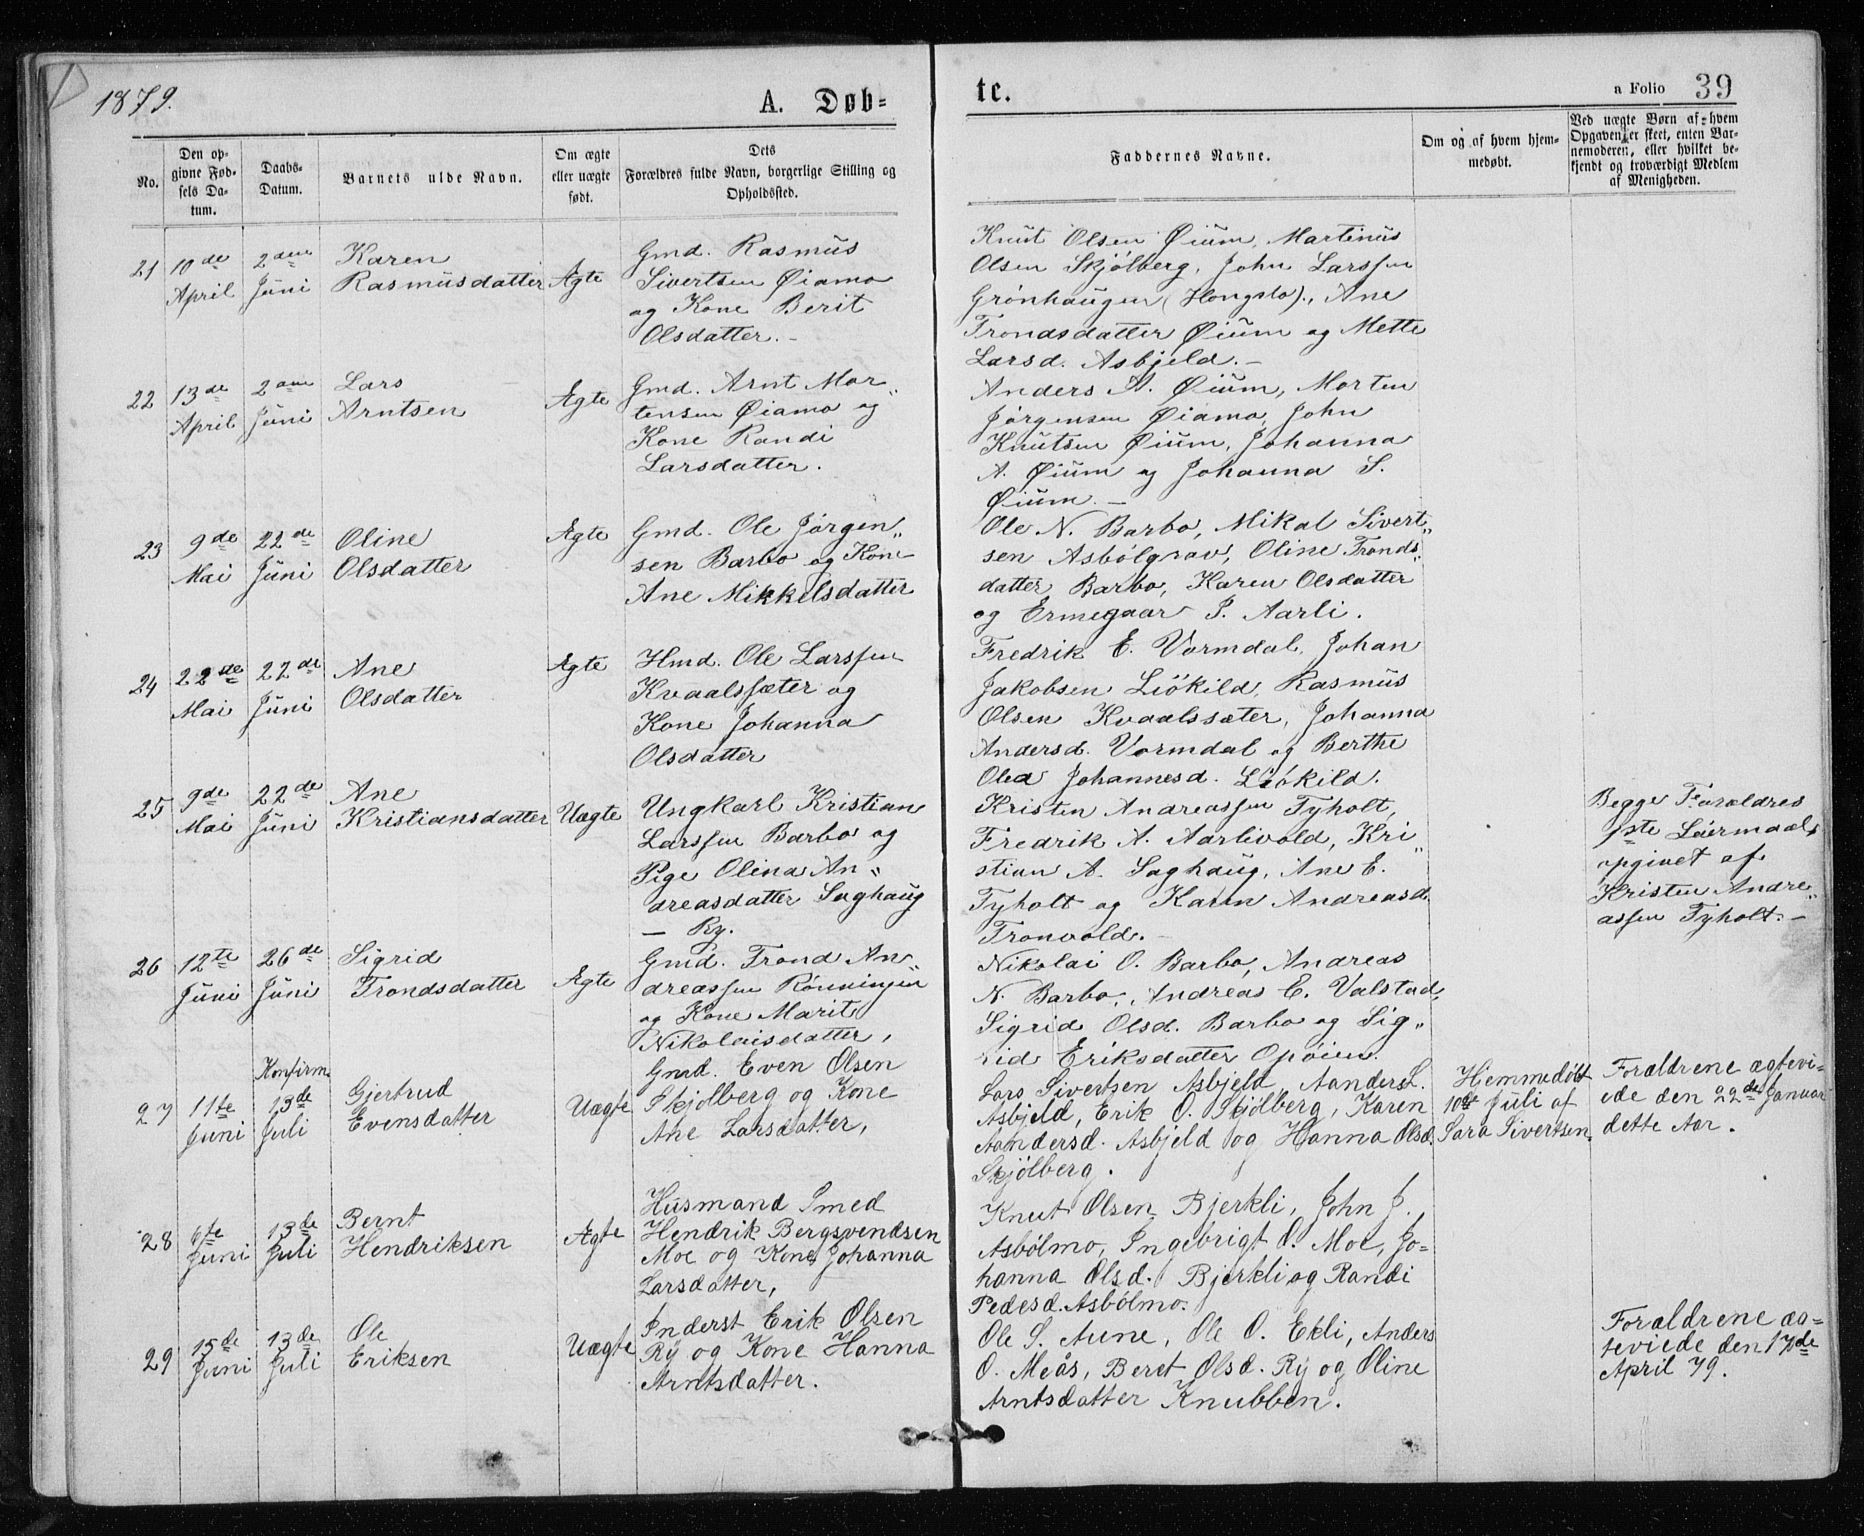 1879.
A. Døb=
te.
a Folio 39
No.
Den op-
givne Fød-
sels Da-
tum.
Daabs-
Datum.
Barnets ulde Navn.
Om ægte
eller uægte
født.
Dets
Forældres fulde Navn, borgerlige Stilling og
Opholdssted.
Faddernes Navne.
Om og af hvem hjem-
medøbt.
Ved uægte Børn af hvem
Opgaven er skeet, enten Bar-
nemoderen, eller hvilket be-
kjendt og troværdigt Medlem
af Menigheden.
21
10de
April
2den
Juni
Karen
Rasmusdatter
Ægte
Gmd. Rasmus
Sivertsen Øiamo
og Kone Berit
Olsdatter.-
Knut Olsen Øium, Martinus
Olsen Skjølberg, John Larssen
Grønhaugen (Hongslo)., Ane
Trondsdatter Øium og Mette
Larsd. Asbjeld.-
22
13de
April
2den
Juni
Lars
Arntsen
Ægte
Gmd. Arnt Mor„
tensen Øiamo og
Kone Randi
Larsdatter.
Anders A. Øium, Morten
Jørgensen Øiamo, John
Knutsen Øium, Johanna
A. Øium og Johanna S.
Øium.-
23
9de
Mai
22de
Juni
Oline
Olsdatter
Ægte
Gmd. Ole Jørgen„
sen Barbo og Kone
Ane Mikkelsdatter
Ole N. Barbo, Mikal Sivert„
sen Asbølgrav, Oline Tronds„
datter Barbo, Karen Olsdatter
og Ermegaar P. Aarli.
24
22de
Mai
22de
Juni
Ane
Olsdatter
Ægte
Hmd. Ole Larssen
Kvaalssæter og
Kone Johanna
Olsdatter
Fredrik E. Vormdal, Johan
Jakobsen Liökild, Rasmus
Olsen Kvaalssæter, Johanna
Andersd. Vormdal og Berthe
Olea Johannesd. Liökild.
25
9de
Mai
22de
Juni
Ane
Kristiansdatter
Uægte
Ungkarl Kristian
Larssen Barbo og
Pige Olina An„
dreasdatter Saghaug
— Ry.
Kristen Andreassen Tyholt,
Fredrik A. Aarlivold, Kri„
stian A. Saghaug, Ane E.
Tyholt og Karen Andreasd.
Tronvold.-
Begge Forældres
1ste Leiermaal,
opgivet af
Kristen Andre„
assen Tyholt.-
26
12te
Juni
26de
Juni
Sigrid
Trondsdatter
Ægte
Gmd. Trond An„
dreassen Rönningen
og Kone Marit
Nikolaisdatter,
Nikolai O. Barbo, Andreas
N. Barbo, Andreas E. Valstad,
Sigrid Olsd. Barbo og Sig„
rid Eriksdatter Opøien.
27
11te
Juni
Konfirm.
13de
Juli
Gjertrud
Evensdatter
Uægte
Gmd. Even Olsen
Skjølberg og Kone
Ane Larsdatter,
Lars Sivertsen Asbjeld, Aanders L.
Asbjeld, Erik O. Skjölberg, Karen
Aandersd. Asbjeld og Hanna Olsd.
Skjölberg.
Hjemmedøbt
10de Juli af
Lars Sivertsen.
Forældrene ægtevi-
ede den 22de Januar
dette Aar.
28
6te
Juni
13de
Juli
Bernt
Hendriksen
Ægte
Husmand Smed
Hendrik Bergsvendsen
Moe og Kone Johanna
Larsdatter,
Knut Olsen Bjerkli, John J.
Asbölmo, Ingebrigt O. Moe, Jo=
hanna Olsd. Bjerkli og Randi
Pedesd. Asbölmo.
29
15de
Juni
13de
Juli
Ole
Eriksen
Uægte
Inderst Erik Olsen
Ry og Kone Hanna
Arntsdatter.
Ole S. Aune, Ole O. Ekli, Anders
O. Meås, Beret Olsd. Ry og Oline
Arntsdatter Knubben.
Forældrene æg=
teviede den 17de
April 79.